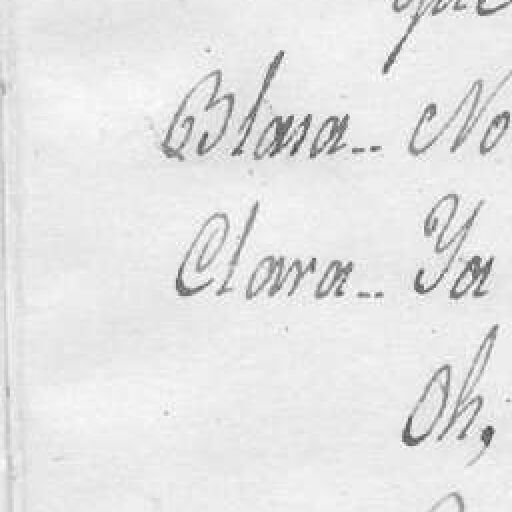 que
Blasa.. No
Clara.. Ya
Oh,